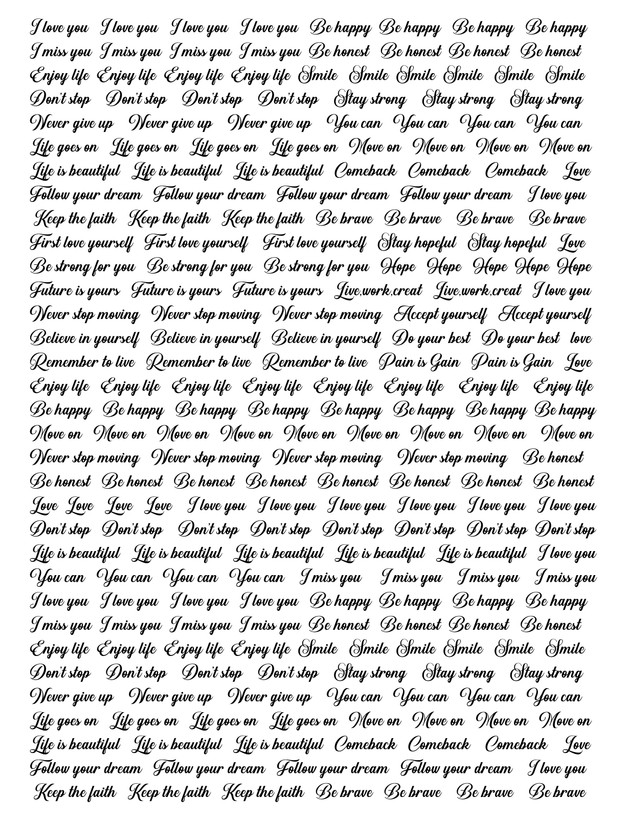 I love you I love you I love you I love you Be happy Be happy Be happy Be happy
I miss you I miss you I miss you I miss you Be honest Be honest Be honest Be honest
Enjoy life Enjoy life Enjoy life Enjoy life Smile Smile Smile Smile Smile Smile
Don't stop Don't stop Don't stop Don't stop Stay strong Stay strong Stay strong
Never give up Never give up Never give up You can You can You can You can
Life goes on Life goes on Life goes on Life goes on Move on Move on Move on Move on
Life is beautiful Life is beautiful Life is beautiful Comeback Comeback Comeback Love
Follow your dream Follow your dream Follow your dream Follow your dream I love you
Keep the faith Keep the faith Keep the faith Be brave Be brave Be brave Be brave
First love yourself First love yourself First love yourself Stay hopeful Stay hopeful Love
Be strong for you Be strong for you Be strong for you Hope Hope Hope Hope Hope
Future is yours Future is yours Future is yours Live,work,creat Live,work,creat I love you
Never stop moving Never stop moving Never stop moving Accept yourself Accept yourself
Believe in yourself Believe in yourself Believe in yourself Do your best Do your best love
Remember to live Remember to live Remember to live Pain is Gain Pain is Gain Love
Enjoy life Enjoy life Enjoy life Enjoy life Enjoy life Enjoy life Enjoy life Enjoy life
Be happy Be happy Be happy Be happy Be happy Be happy Be happy Be happy
Move on Move on Move on Move on Move on Move on Move on Move on Move on
Never stop moving Never stop moving Never stop moving Never stop moving Be honest
Be honest Be honest Be honest Be honest Be honest Be honest Be honest Be honest
Love Love Love Love I love you I love you I love you I love you I love you I love you
Don't stop Don't stop Don't stop Don't stop Don't stop Don't stop Don't stop Don't stop
Life is beautiful Life is beautiful Life is beautiful Life is beautiful Life is beautiful I love you
You can You can You can You can I miss you I miss you I miss you I miss you
I love you I love you I love you I love you Be happy Be happy Be happy Be happy
I miss you I miss you I miss you I miss you Be honest Be honest Be honest Be honest
Enjoy life Enjoy life Enjoy life Enjoy life Smile Smile Smile Smile Smile Smile
Don't stop Don't stop Don't stop Don't stop Stay strong Stay strong Stay strong
Never give up Never give up Never give up You can You can You can You can
Life goes on Life goes on Life goes on Life goes on Move on Move on Move on Move on
Life is beautiful Life is beautiful Life is beautiful Comeback Comeback Comeback Love
Follow your dream Follow your dream Follow your dream Follow your dream I love you
Keep the faith Keep the faith Keep the faith Be brave Be brave Be brave Be brave